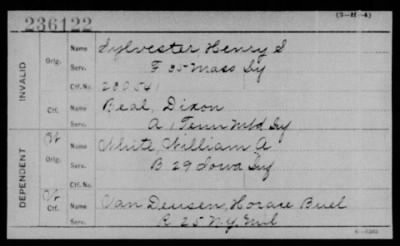 236122
(3-H-4)
INVALID
Orig.
Name Sylvester Henry S
Serv. F 35 Mass Inf
Ctf. No. 280541
Ctf.
Name Beal, Dixon
Serv. A 1 Tenn Mtd Inf
DEPENDENT
Orig.
Name White, William A
Serv. B 29 Iowa Inf
Ctf. No.
Ctf.
Name Van Deusen, Horace Buel
Serv. 25 N.Y.